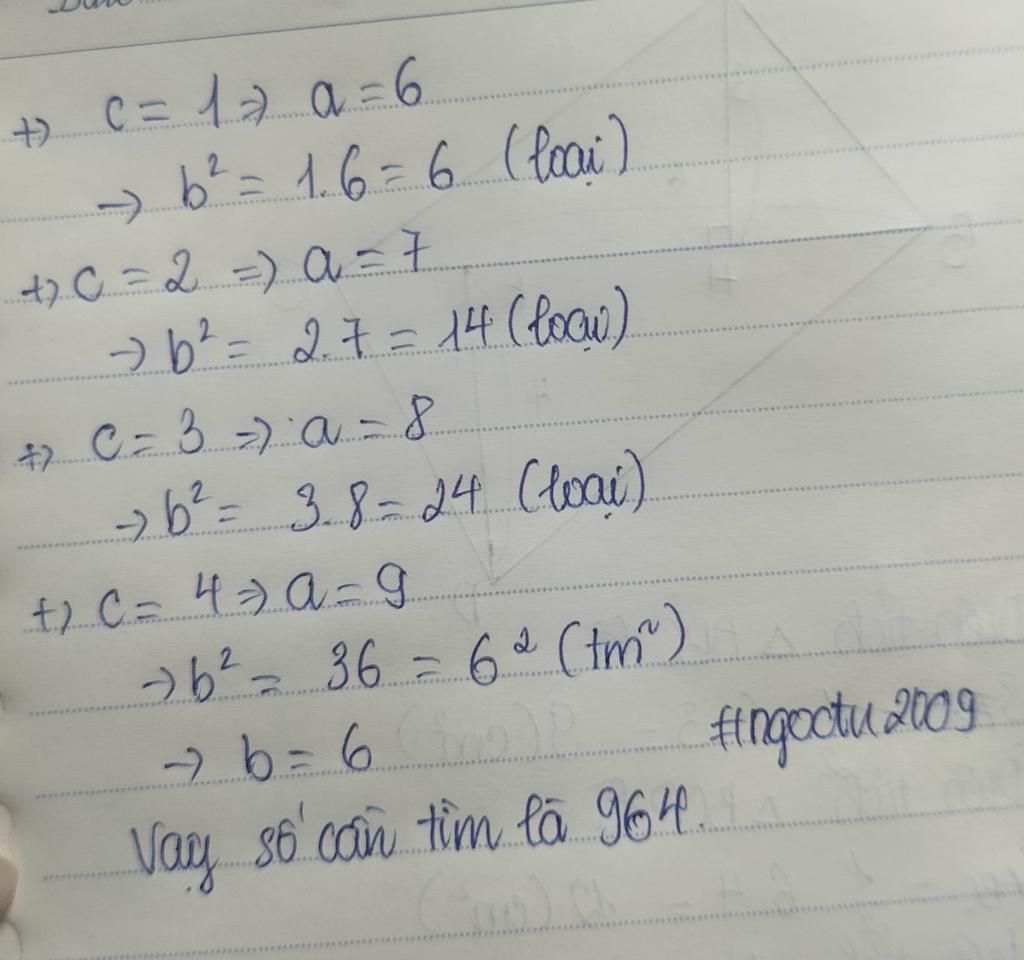 +) c = 1 => a = 6
-> b² = 1.6 = 6 (loại)
+) c = 2 => a = 7
-> b² = 2.7 = 14 (loại)
+) c = 3 => a = 8
-> b² = 3.8 = 24 (loại)
+) c = 4 => a = 9
-> b² = 36 = 6² (tm~)
-> b = 6
#ngoctu2009
Vậy số cần tìm là 964.